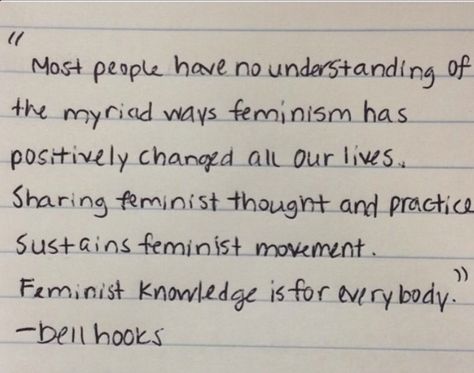 "
Most people have no understanding of
the myriad ways feminism has
positively changed all our lives.
Sharing feminist thought and practice
sustains feminist movement.
Feminist knowledge is for everybody."
-bell hooks